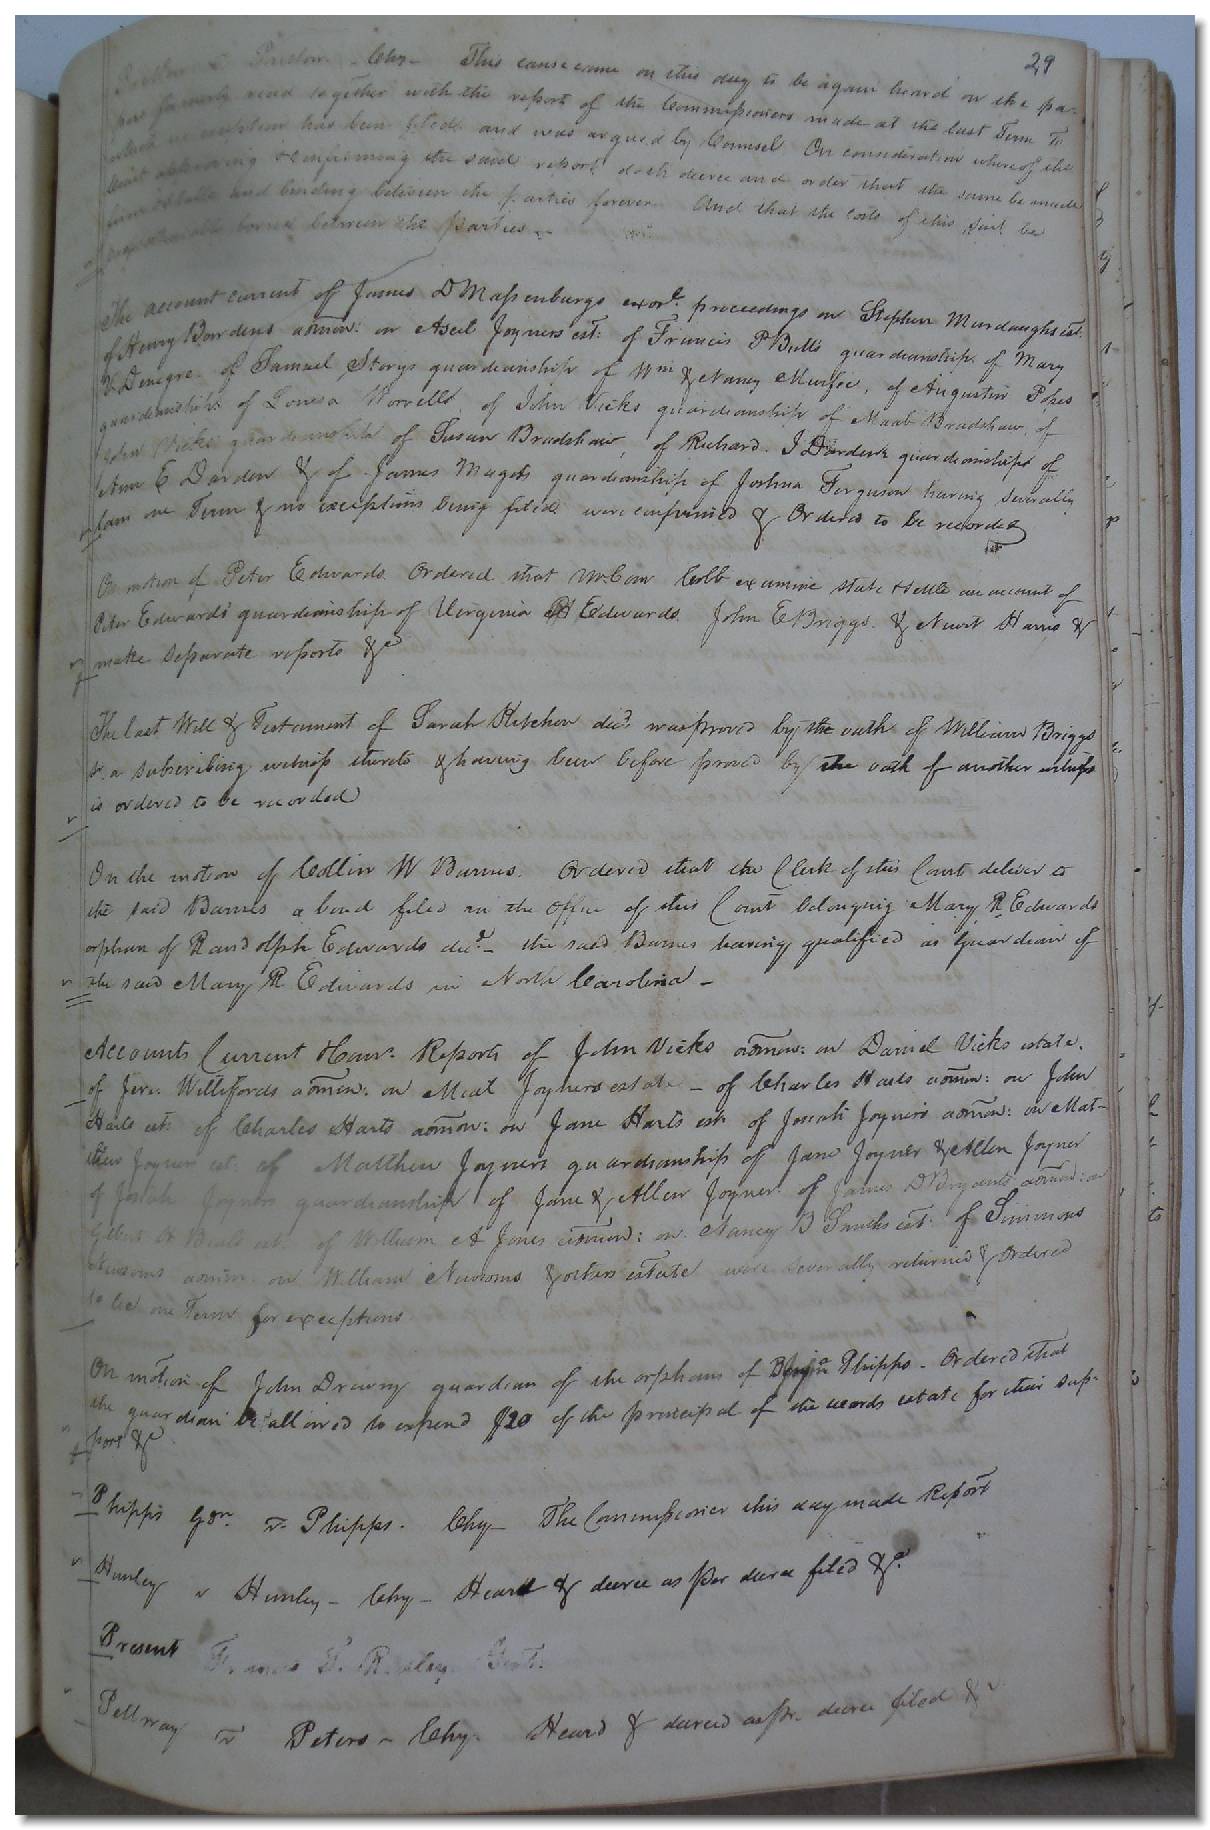 29
Chy This cause came on this day to be again heard on the pa-
pers formerly read together with the report of the Commissioners made at the last Term To
which no exception has been filed and was argued by Counsel On consideration whereof the
Court approving & confirming the said report doth decree and order that the same be made
firm stable and binding between the parties forever And that the costs of this suit be
borne between the parties
The account current of James D Massenburgs exors. proceedings on Stephen Murdaughs est:
of Henry Bordens admon: on Aseil Joyners est: of Francis P Butts guardianship of Mary
Denegre of Samuel Storys guardianship of Wm & Nancy Murfee, of Augustin Popes
guardianship of Louisa Worrell of John Vicks guardianship of Maab Bradshaw, of
John Vicks guardianship of Susan Bradshaw, of Richard I Darden guardianship of
Ann E Darden & of James Magets guardianship of Joshua Ferguson having severally
lain one Term & no exceptions being filed were confirmed & Ordered to be recorded
On motion of Peter Edwards Ordered that Mr Com Cobb examine state & settle an account of
Peter Edwards' guardianship of Virginia Edwards John E Briggs & Newit Harris &
make separate reports &c
The last Will & Testament of Sarah Kitchen decd. was proved by the oath of William Briggs
a subscribing witness thereto & having been before proved by the oath of another witness
is ordered to be recorded
On the motion of Collin W Barnes. Ordered that the Clerk of this Court deliver to
the said Barnes a bond filed in the office of this Court belonging Mary R Edwards
orphan of Randolph Edwards decd. - the said Barnes having qualified as guardian of
the said Mary R Edwards in North Carolina -
Accounts Current Reports of John Vicks admon: on Daniel Vicks estate,
of Jere: Willifords admon: on Meal Joyners estate - of Charles Harts admon: on John
Harts est: of Charles Harts admon: on Jane Harts est: of Josiah Joyners admon: on Mat-
thew Joyners est: of Matthew Joyners guardianship of Jane Joyner & Allen Joyner
of Josiah Joyners guardianship of Jane & Allen Joyner of James D Bryants admon: on
est: of William A Jones admon: on Nancy B Smiths est: of Simmons
Newsoms admon: on William Newsoms & others estate were severally returned & Ordered
to lie one Term for exceptions
On motion of John Drewry guardian of the orphans of Benjn Phipps - Ordered that
the guardian be allowed to expend $20 of the principal of the wards estate for their sup-
port &c
Phipps gdn. v. Phipps. Chy - The Commissioner this day made Report
Hunley v Hunley - Chy - Heard & decree as per decree filed &c.
Present Francis Gent.
Pettway v Peters - Chy. Heard & decreed as pr. decree filed &c